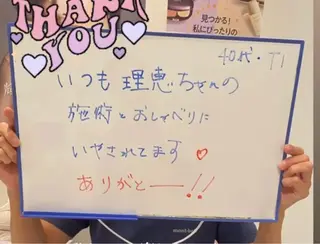 THANK YOU
見つかる!
私にぴったりの
40代・T.I
いつも理恵ちゃんの
施術とおしゃべりに
いやされてます
ありがとーーー!!